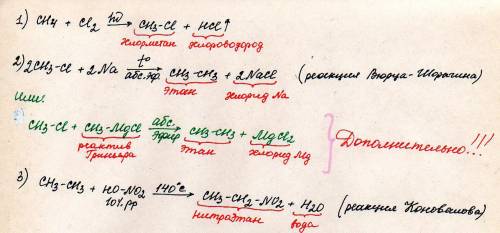 1) CH4 + Cl2 hν→ CH3-Cl + HCl↑
хлорметан хлороводород
2) 2CH3-Cl + 2Na t° абс.эф.→ CH3-CH3 + 2NaCl (реакция Вюрца-Шорыгина)
этан хлорид Na
или:
CH3-Cl + CH3-MgCl абс. эфир→ CH3-CH3 + MgCl2 Дополнительно...!!!
реактив Гриньяра этан хлорид Mg
3) CH3-CH3 + HO-NO2 140°C→ CH3-CH2-NO2 + H2O (реакция Коновалова)
10% рр нитроэтан вода